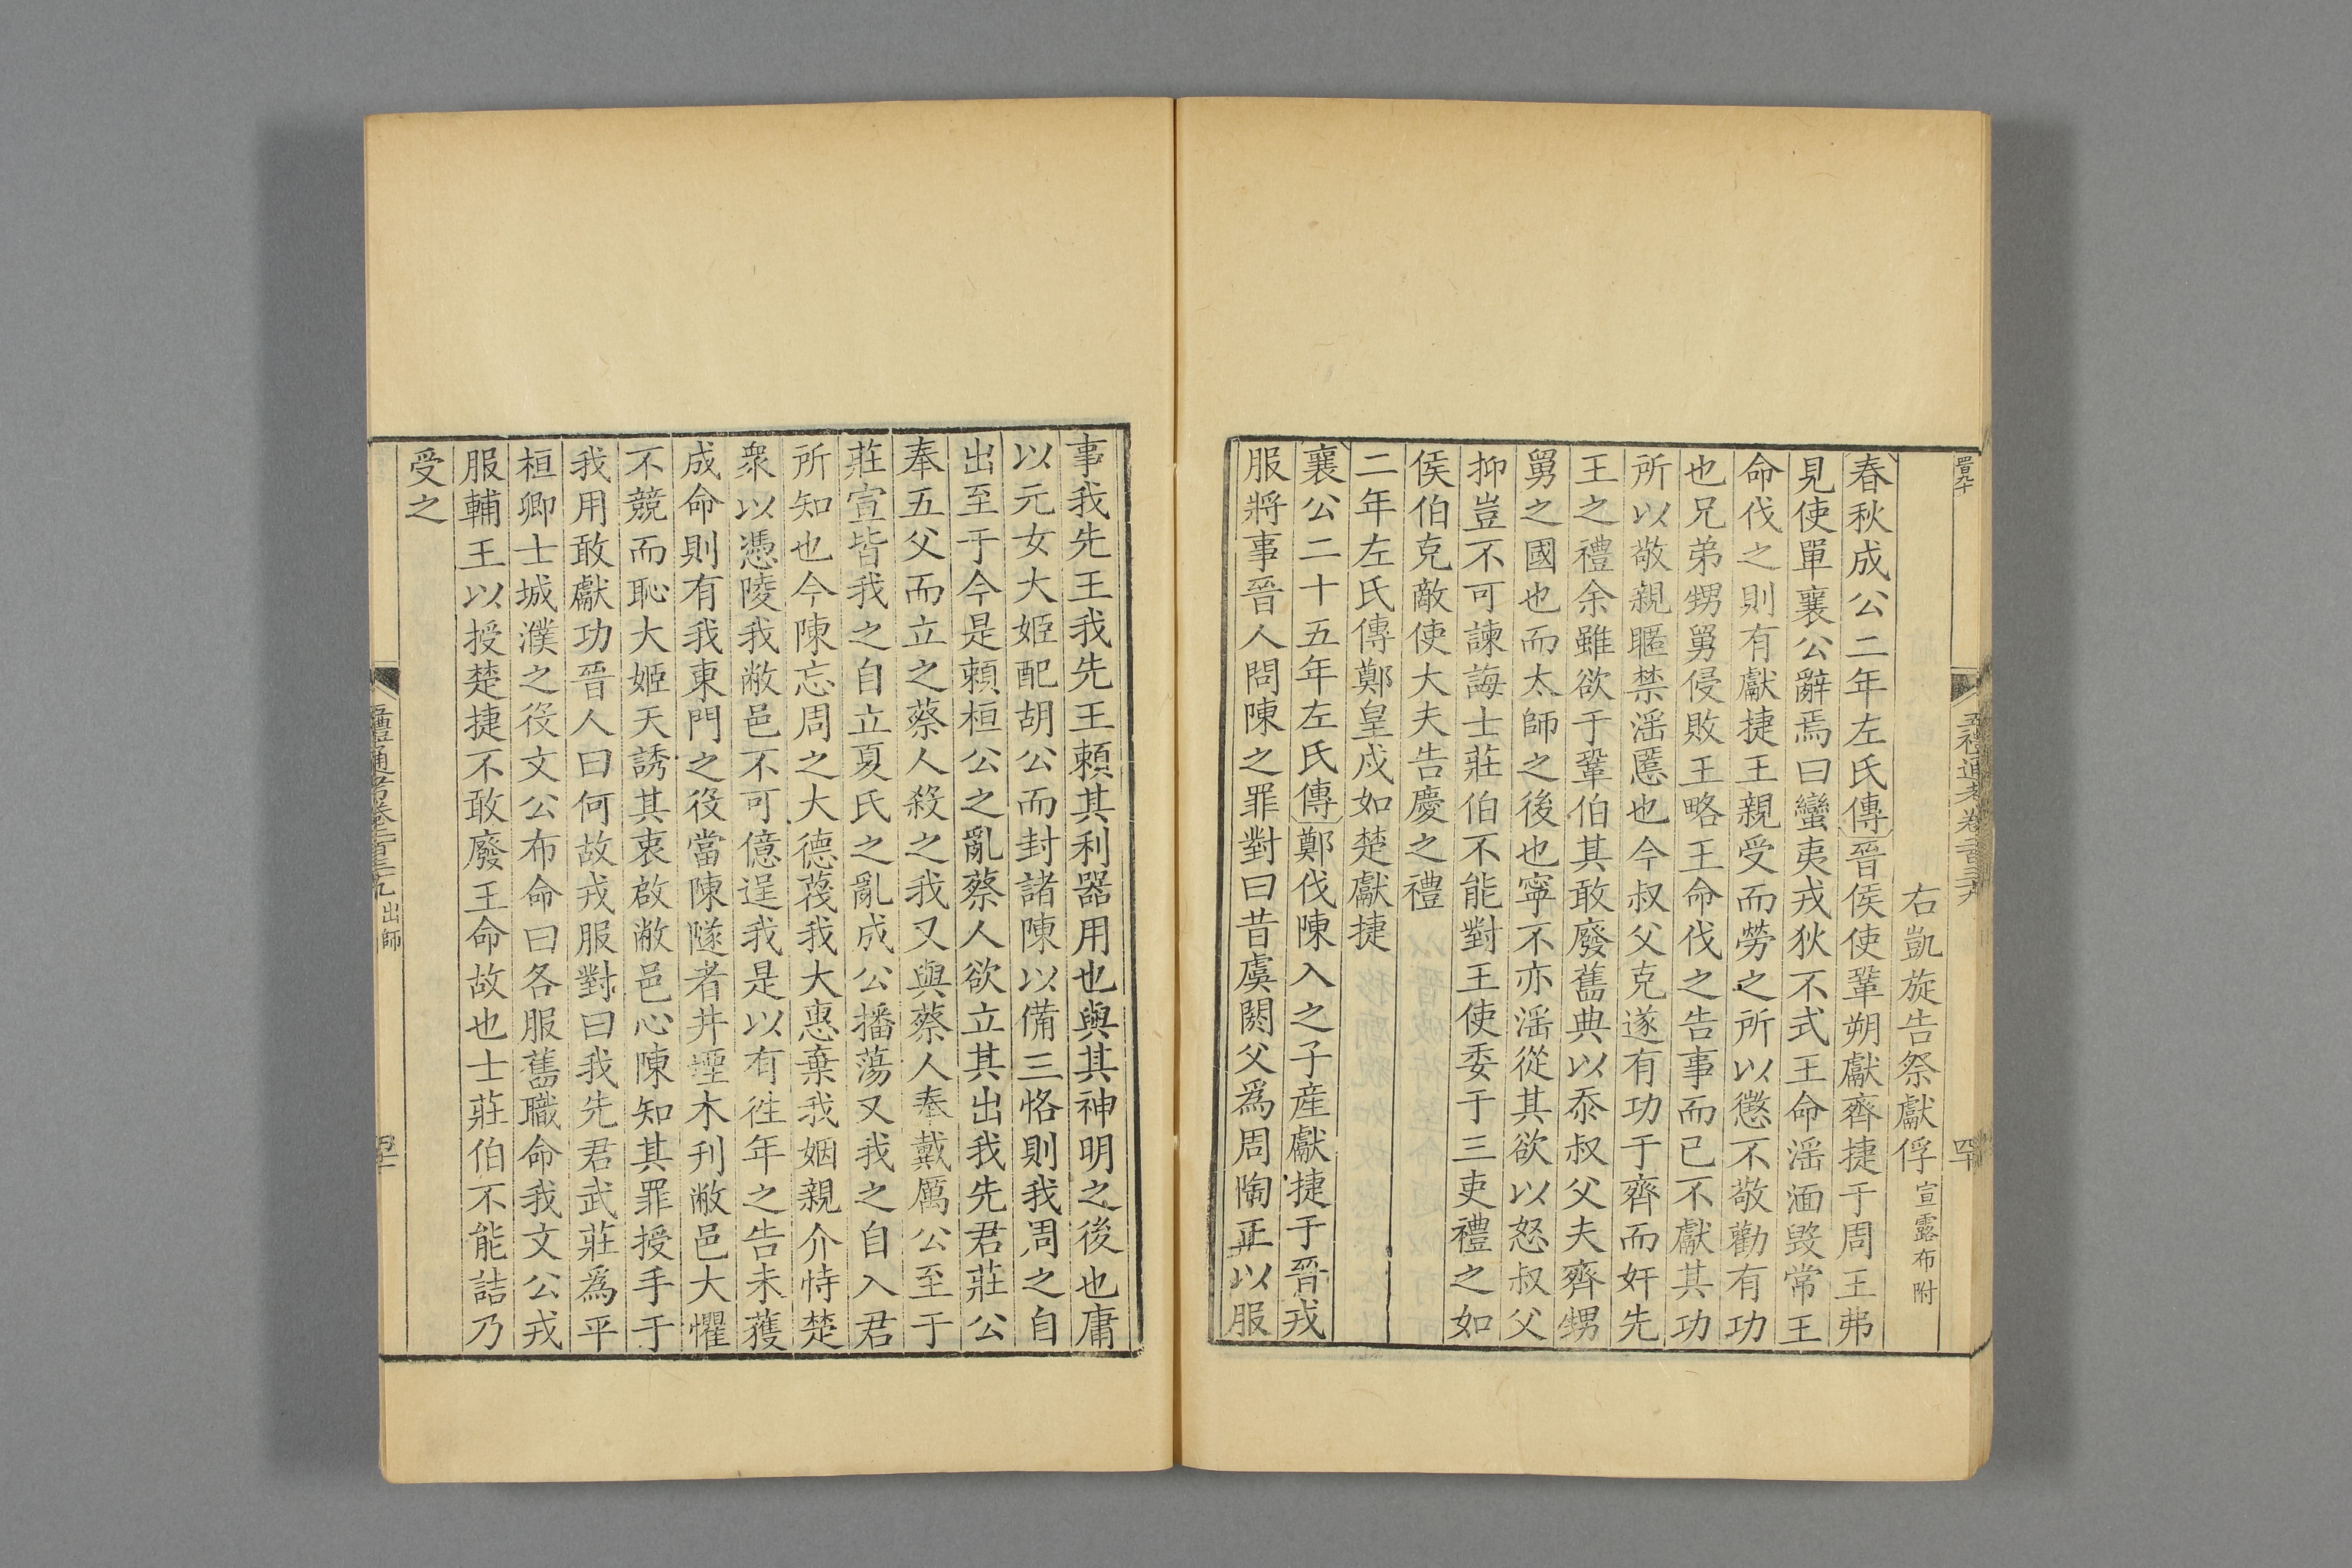 右凱旋告祭獻俘宣露布附
春秋成公二年左氏傳晉侯使鞏朔獻齊捷于周王弗
見使單襄公辭焉曰蠻夷戎狄不式王命滛湎毀常王
命伐之則有獻捷王親受而勞之所以懲不敬勸有功
也兄弟甥舅侵敗王略王命伐之告事而已不獻其功
所以敬親暱禁滛慝也今叔父克遂有功于齊而奸先
王之禮余雖欲于鞏伯其敢廢舊典以忝叔父夫齊甥
舅之國也而太師之後也寧不亦滛從其欲以怒叔父
抑豈不可諫誨士莊伯不能對王使委于三吏禮之如
侯伯克敵使大夫告慶之禮
二年左氏傳鄭皇戌如楚獻捷
襄公二十五年左氏傳鄭伐陳入之子産獻捷于晉戎
服將事晉人問陳之罪對曰昔虞閼父爲周陶正以服
事我先王我先王賴其利器用也與其神明之後也庸
以元女大姬配胡公而封諸陳以備三恪則我周之自
出至于今是賴桓公之亂蔡人欲立其出我先君莊公
奉五父而立之蔡人殺之我又與蔡人奉戴厲公至于
莊宣皆我之自立夏氏之亂成公播蕩又我之自入君
所知也今陳忘周之大德蔑我大惠棄我姻親介恃楚
衆以憑陵我敝邑不可億逞我是以有徃年之告未獲
成命則有我東門之役當陳隧者井堙木刋敝邑大懼
不競而恥大姬天誘其衷啟敝邑心陳知其罪授手于
我用敢獻功晉人曰何故戎服對曰我先君武莊爲平
桓卿士城濮之役文公布命曰各服舊職命我文公戎
服輔王以授楚捷不敢廢王命故也士莊伯不能詰乃
受之
五禮通考卷二百三十九 出師